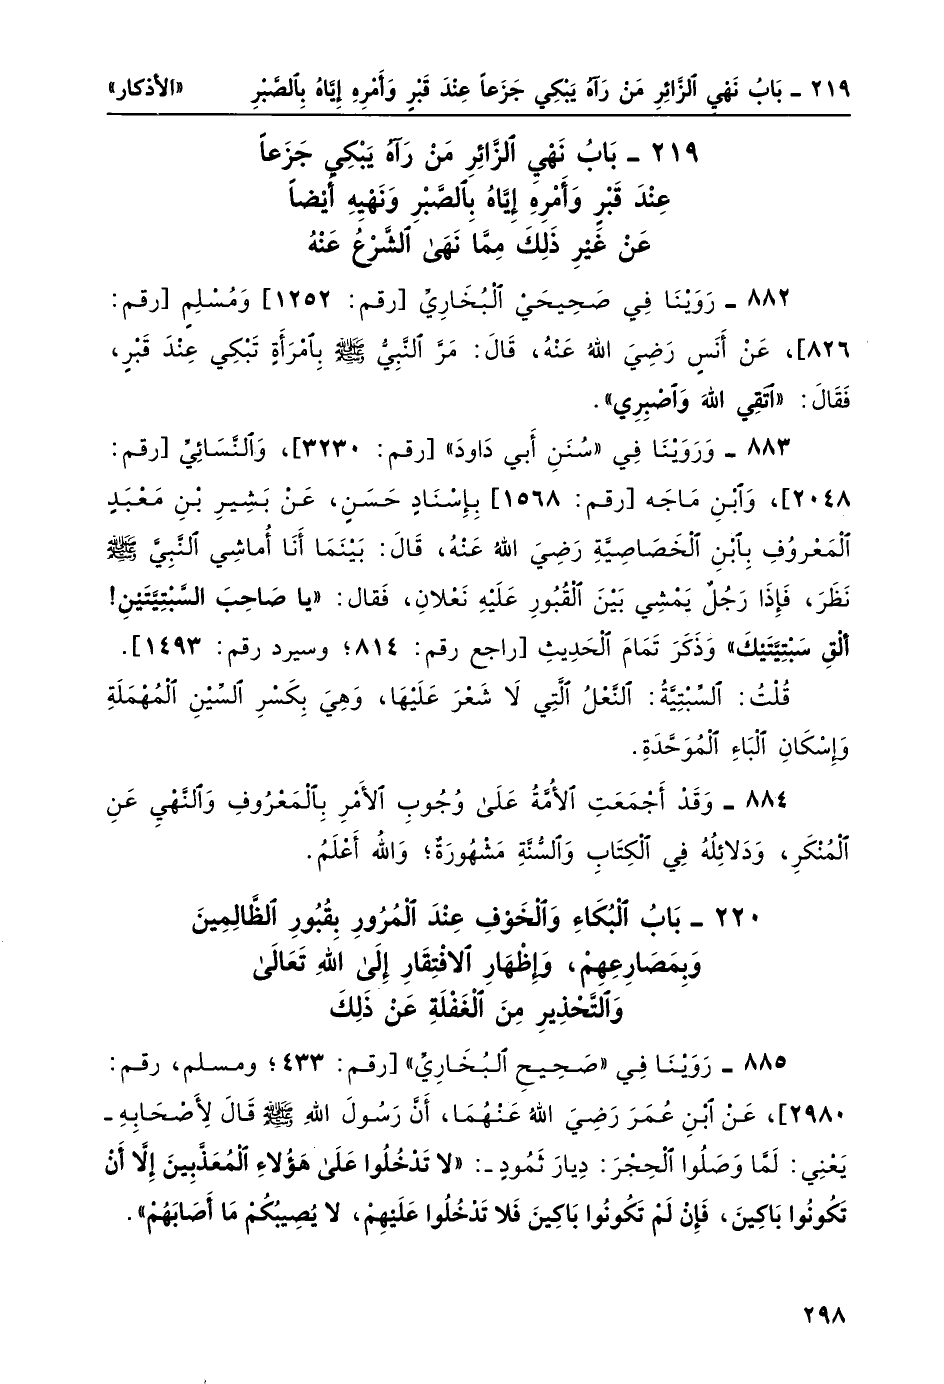 ٢١٩ ـ بَابُ نَهْيِ ٱلزَّائِرِ مَنْ رَآهُ يَبْكِي جَزَعاً عِنْدَ قَبْرٍ وَأَمْرِهِ إِيَّاهُ بِٱلصَّبْرِ «الأذكار»
٢١٩ ـ بَابُ نَهْيِ ٱلزَّائِرِ مَنْ رَآهُ يَبْكِي جَزَعاً
عِنْدَ قَبْرٍ وَأَمْرِهِ إِيَّاهُ بِٱلصَّبْرِ وَنَهْيِهِ أَيْضاً
عَنْ غَيْرِ ذَلِكَ مِمَّا نَهَىٰ ٱلشَّرْعُ عَنْهُ
٨٨٢ ـ رَوَيْنَا فِي صَحِيحَيْ ٱلْبُخَارِيِّ [رقم: ١٢٥٢] وَمُسْلِمٍ [رقم:
٨٢٦]، عَنْ أَنَسٍ رَضِيَ اللهُ عَنْهُ، قَالَ: مَرَّ ٱلنَّبِيُّ ﷺ بِٱمْرَأَةٍ تَبْكِي عِنْدَ قَبْرٍ،
فَقَالَ: «ٱتَّقِي اللهَ وَٱصْبِرِي».
٨٨٣ ـ وَرَوَيْنَا فِي «سُنَنِ أَبي دَاودَ» [رقم: ٣٢٣٠]، وَٱلنَّسَائِيِّ [رقم:
٢٠٤٨]، وَٱبْنِ مَاجَه [رقم: ١٥٦٨] بِإِسْنَادٍ حَسَنٍ، عَنْ بَشِيرِ بْنِ مَعْبَدٍ
ٱلْمَعْرُوفِ بِٱبْنِ ٱلْخَصَاصِيَّةِ رَضِيَ اللهُ عَنْهُ، قَالَ: بَيْنَمَا أَنَا أُماشِي ٱلنَّبِيَّ ﷺ
نَظَرَ، فَإِذَا رَجُلٌ يَمْشِي بَيْنَ ٱلْقُبُورِ عَلَيْهِ نَعْلَانِ، فَقال: «يا صَاحِبَ السَّبْتِيَّتَيْنِ!
أَلْقِ سَبْتِيَّتَيْكَ» وَذَكَرَ تَمَامَ ٱلْحَدِيثِ [راجع رقم: ٨١٤؛ وسيرد رقم: ١٤٩٣].
قُلْتُ: ٱلسِّبْتِيَّةُ: ٱلنَّعْلُ ٱلَّتِي لَا شَعْرَ عَلَيْهَا، وَهِيَ بِكَسْرِ ٱلسِّيْنِ ٱلْمُهْمَلَةِ
وَإِسْكَانِ ٱلْبَاءِ ٱلْمُوَحَّدَةِ.
٨٨٤ ـ وَقَدْ أَجْمَعَتِ ٱلأُمَّةُ عَلَىٰ وُجُوبِ ٱلأَمْرِ بِٱلْمَعْرُوفِ وَٱلنَّهْيِ عَنِ
ٱلْمُنْكَرِ، وَدَلائِلُهُ فِي ٱلْكِتَابِ وَٱلسُّنَّةِ مَشْهُورَةٌ؛ وَاللهُ أَعْلَمُ.
٢٢٠ ـ بَابُ ٱلْبُكَاءِ وَٱلْخَوْفِ عِنْدَ ٱلْمُرُورِ بِقُبُورِ ٱلظَّالِمِينَ
وَبِمَصَارِعِهِمْ، وَإِظْهَارِ ٱلافْتِقَارِ إِلَىٰ اللهِ تَعَالَىٰ
وَٱلتَّحْذِيرِ مِنَ ٱلْغَفْلَةِ عَنْ ذَلِكَ
٨٨٥ ـ رَوَيْنَا فِي «صَحِيحِ ٱلبُخَارِيِّ» [رقم: ٤٣٣؛ ومسلم، رقم:
٢٩٨٠]، عَنْ ٱبْنِ عُمَرَ رَضِيَ اللهُ عَنْهُمَا، أَنَّ رَسُولَ اللهِ ﷺ قَالَ لِأَصْحَابِهِ ـ
يَعْنِي: لَمَّا وَصَلُوا ٱلْحِجْرَ: دِيارَ ثَمُودٍ ـ: «لا تَدْخُلُوا عَلَىٰ هَؤُلاءِ ٱلْمُعَذَّبِينَ إِلَّا أَنْ
تَكُونُوا بَاكِينَ، فَإِنْ لَمْ تَكُونُوا بَاكِينَ فَلا تَدْخُلُوا عَلَيْهِمْ، لا يُصِيبُكُمْ مَا أَصَابَهُمْ».
٢٩٨